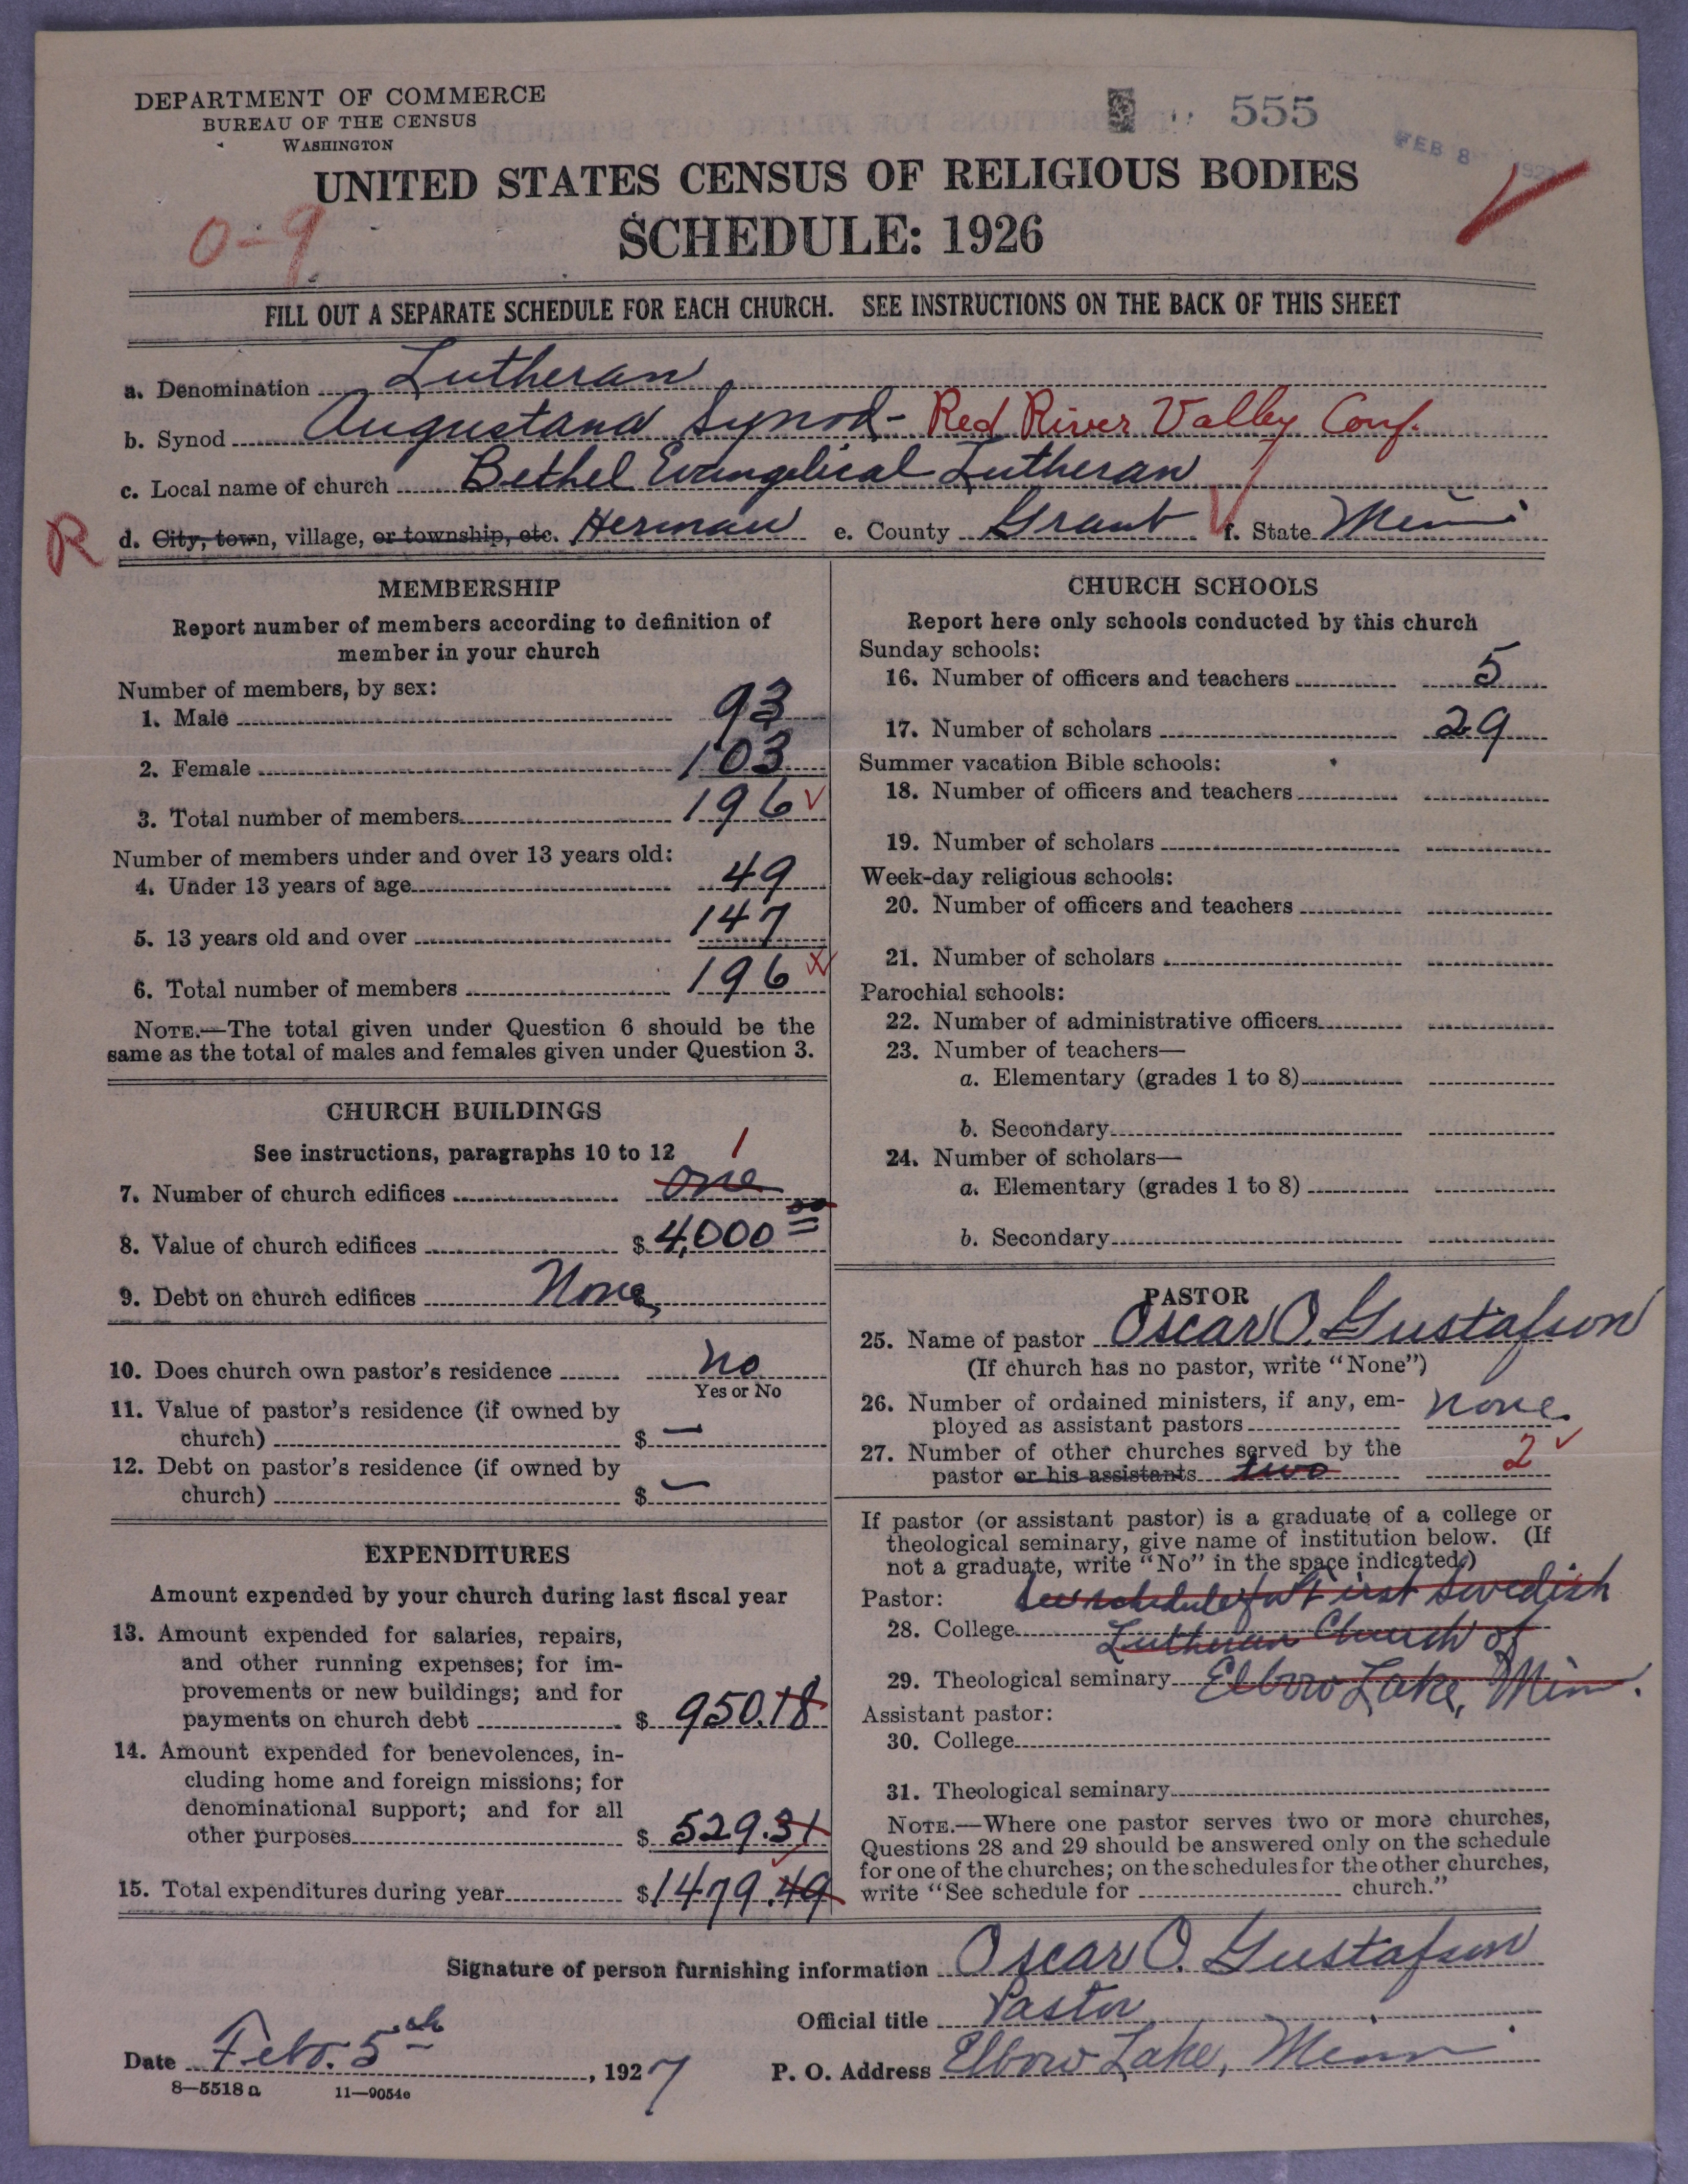 DEPARTMENT OF COMMERCE
BUREAU OF THE CENSUS
WASHINGTON
555
FEB 8
UNITED STATES CENSUS OF RELIGIOUS BODIES
SCHEDULE: 1926
0-9
FILL OUT A SEPARATE SCHEDULE FOR EACH CHURCH. SEE INSTRUCTIONS ON THE BACK OF THIS SHEET
a. Denomination Lutheran
b. Synod Augustana Synod - Red River Valley Conf.
c. Local name of church Bethel Evangelical Lutheran
R d. City, town, village, or township, etc. Herman e. County Grant f. State Minn
MEMBERSHIP
Report number of members according to definition of
member in your church
Number of members, by sex:
1. Male 93
2. Female 103
3. Total number of members 196
Number of members under and over 13 years old:
4. Under 13 years of age 49
5. 13 years old and over 147
6. Total number of members 196
NOTE.—The total given under Question 6 should be the
same as the total of males and females given under Question 3.
CHURCH BUILDINGS
See instructions, paragraphs 10 to 12 1
7. Number of church edifices one
8. Value of church edifices $ 4,000 00
9. Debt on church edifices None
10. Does church own pastor's residence no
Yes or No
11. Value of pastor's residence (if owned by
church) $ —
12. Debt on pastor's residence (if owned by
church) $ —
EXPENDITURES
Amount expended by your church during last fiscal year
13. Amount expended for salaries, repairs,
and other running expenses; for im-
provements or new buildings; and for
payments on church debt $ 950.18
14. Amount expended for benevolences, in-
cluding home and foreign missions; for
denominational support; and for all
other purposes $ 529.31
15. Total expenditures during year $ 1479.49
CHURCH SCHOOLS
Report here only schools conducted by this church
Sunday schools:
16. Number of officers and teachers 5
17. Number of scholars 29
Summer vacation Bible schools:
18. Number of officers and teachers
19. Number of scholars
Week-day religious schools:
20. Number of officers and teachers
21. Number of scholars
Parochial schools:
22. Number of administrative officers
23. Number of teachers—
a. Elementary (grades 1 to 8)
b. Secondary
24. Number of scholars—
a. Elementary (grades 1 to 8)
b. Secondary
PASTOR
25. Name of pastor Oscar O. Gustafson
(If church has no pastor, write "None")
26. Number of ordained ministers, if any, em-
ployed as assistant pastors none
27. Number of other churches served by the
pastor or his assistants two 2
If pastor (or assistant pastor) is a graduate of a college or
theological seminary, give name of institution below. (If
not a graduate, write "No" in the space indicated.)
Pastor: See schedule for First Swedish
28. College Lutheran Church of
29. Theological seminary Elbow Lake, Minn.
Assistant pastor:
30. College
31. Theological seminary
NOTE.—Where one pastor serves two or more churches,
Questions 28 and 29 should be answered only on the schedule
for one of the churches; on the schedules for the other churches,
write "See schedule for church."
Signature of person furnishing information Oscar O. Gustafson
Official title Pastor
Date Feb. 5th, 1927 P. O. Address Elbow Lake, Minn
8—5518 a 11—9054e